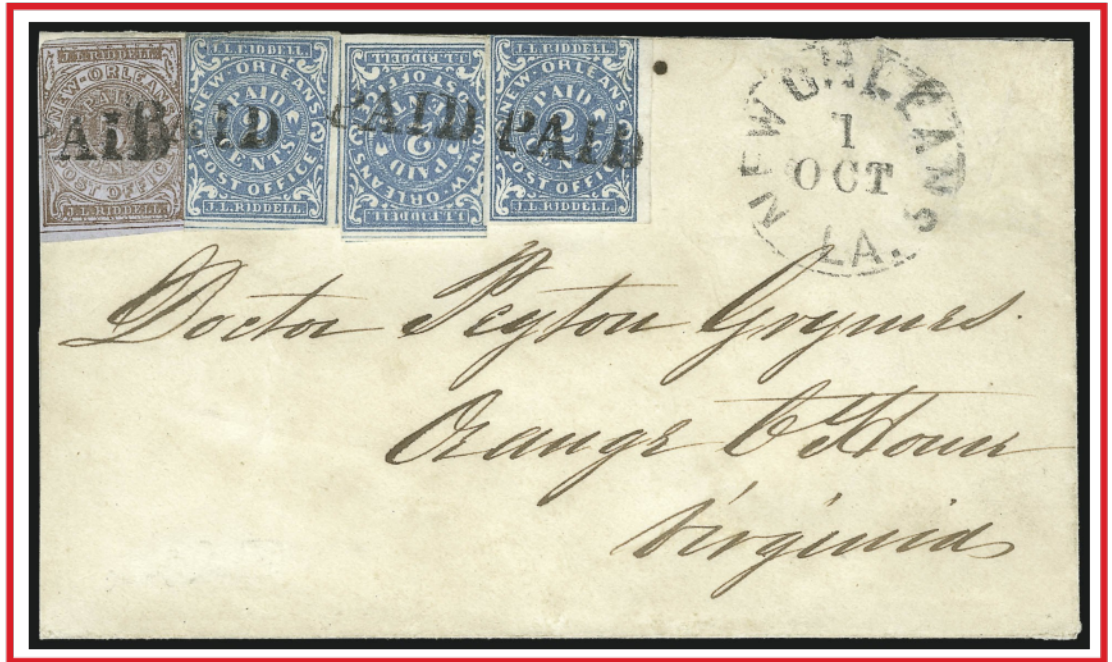 J.L.RIDDELL.
NEW-ORLEANS
PAID
5
POST OFFICE
J.L.RIDDELL.
PAID
J.L.RIDDELL.
NEW-ORLEANS
PAID
2
CENTS
POST OFFICE
J.L.RIDDELL.
PAID
J.L.RIDDELL.
NEW-ORLEANS
PAID
2
POST OFFICE
J.L.RIDDELL.
PAID
J.L.RIDDELL.
NEW-ORLEANS
PAID
2
CENTS
POST OFFICE
J.L.RIDDELL.
PAID
NEW ORLEANS
1
OCT
LA.
Doctor Peyton Grymes.
Orange C House
Virginia